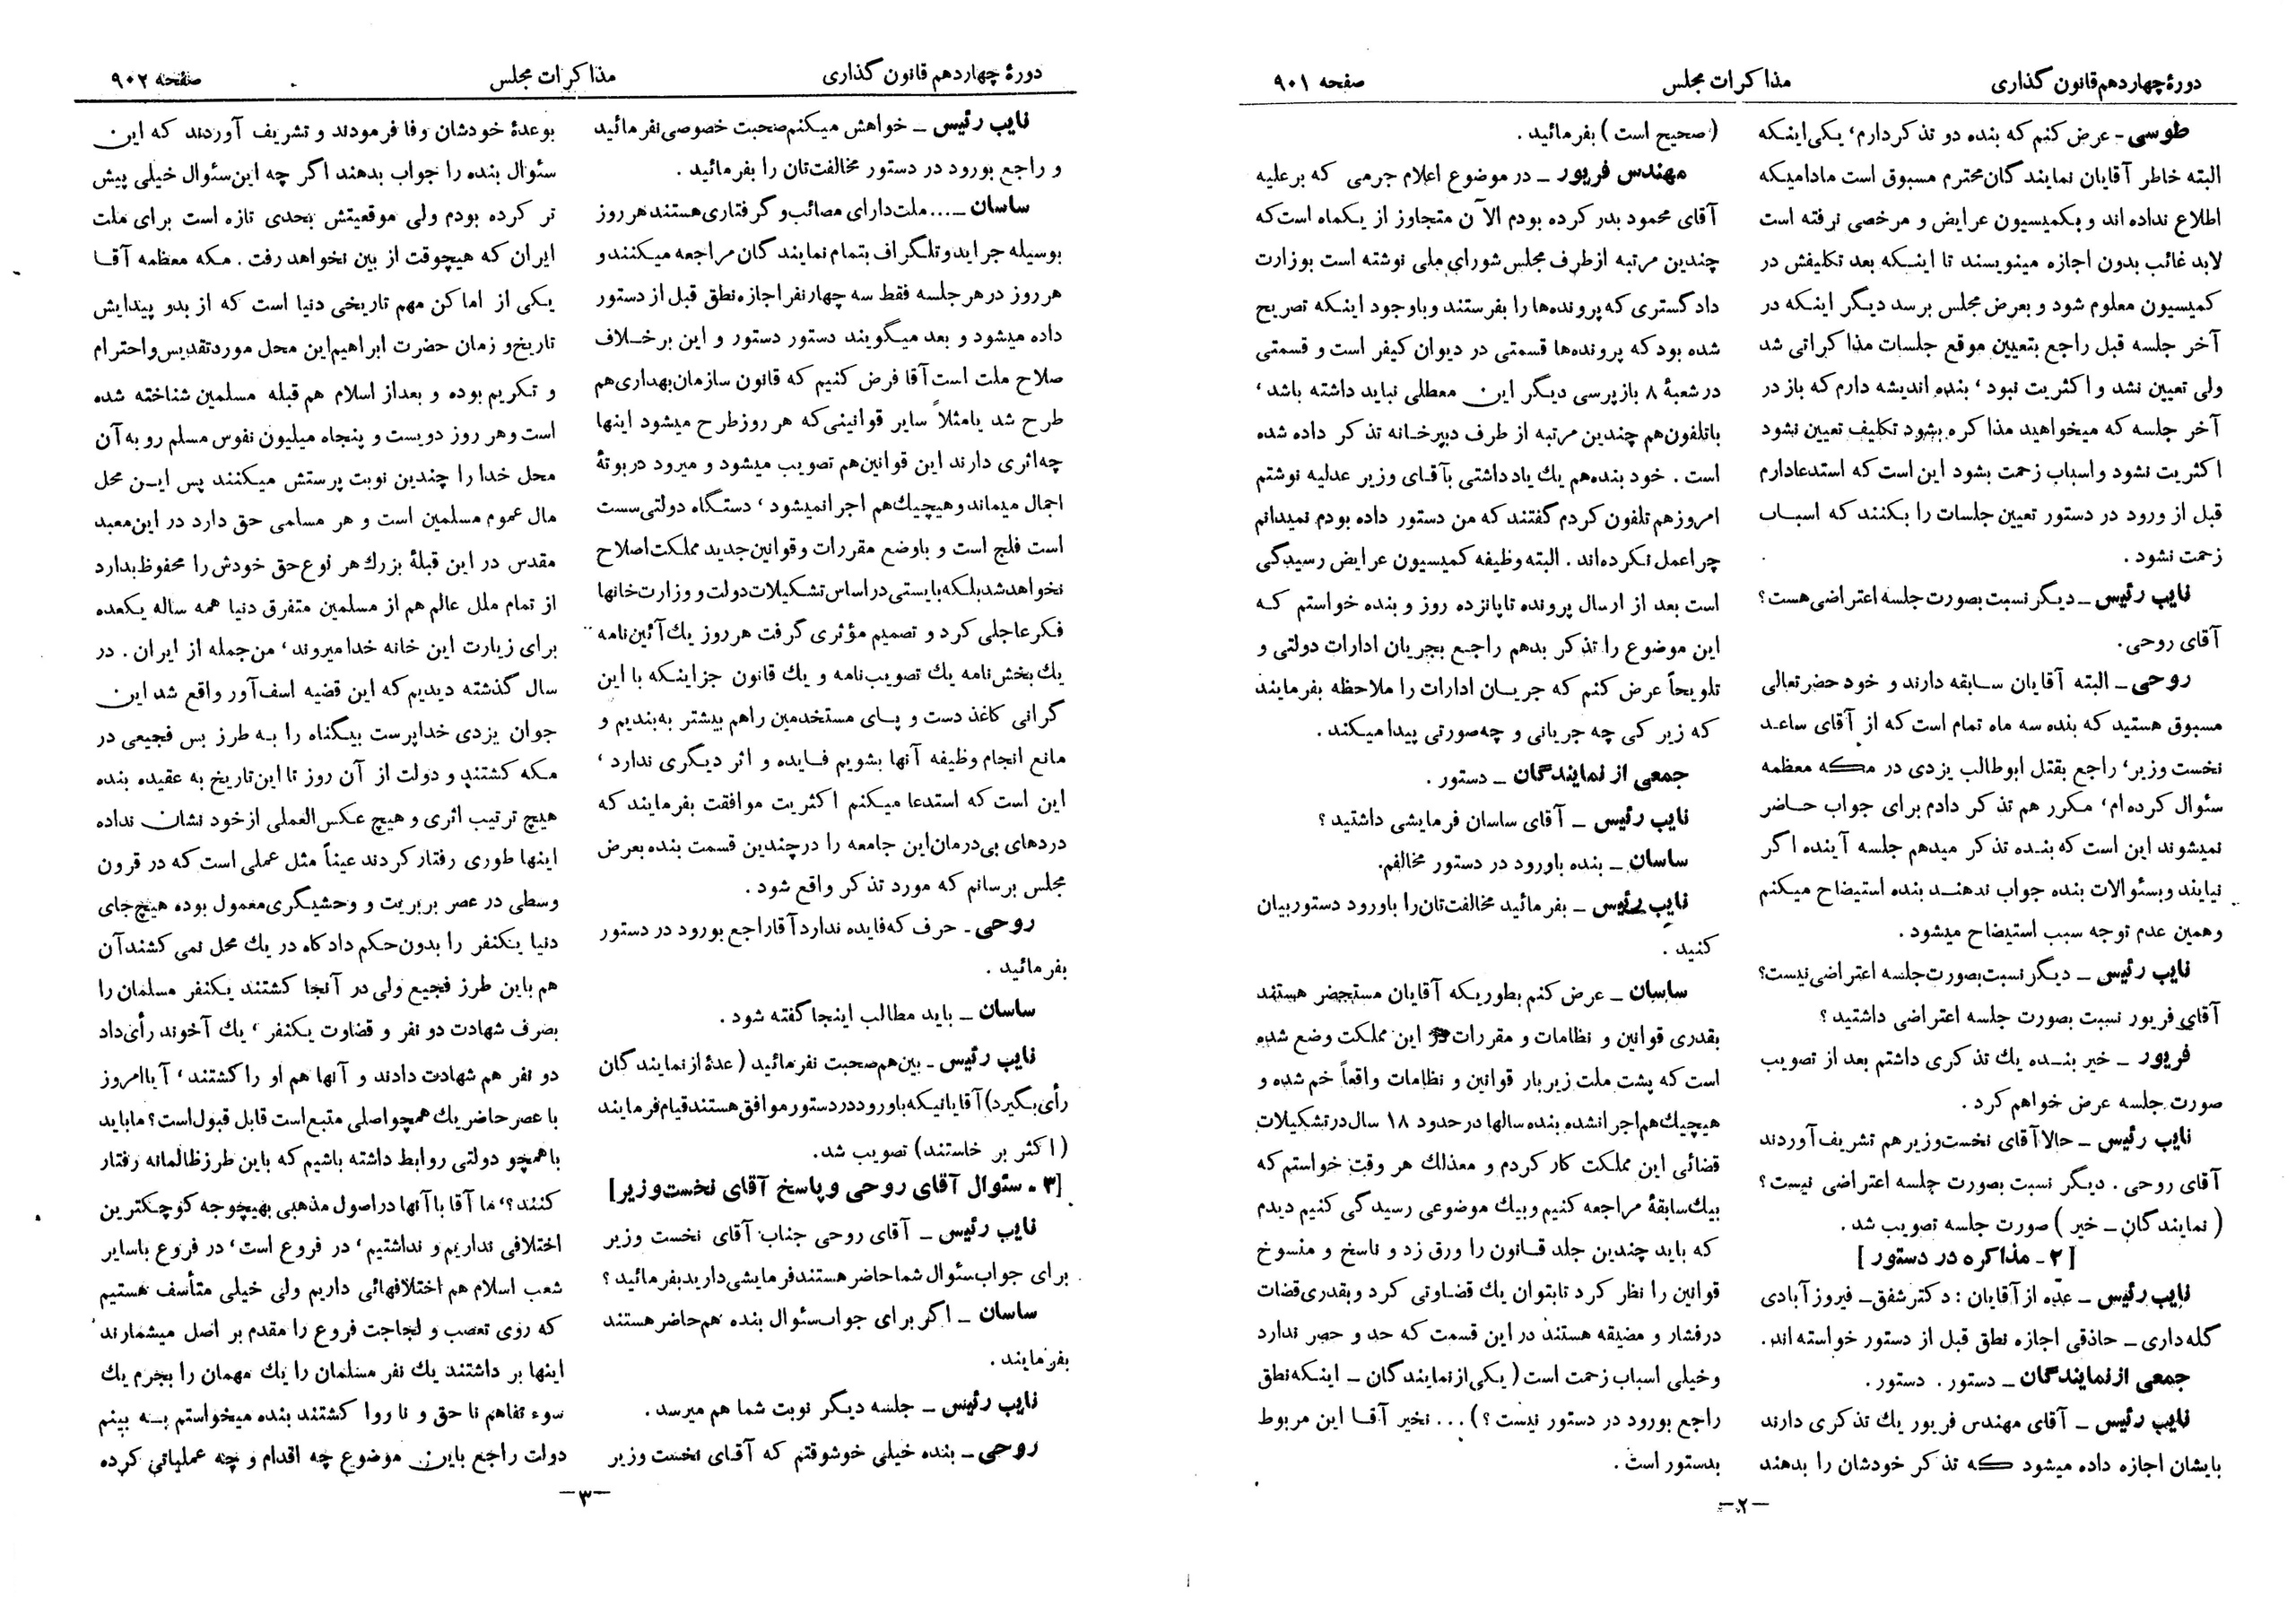 دورهٔ چهاردهم قانون گذاری
مذاکرات مجلس
صفحه ۹۰۱
طوسی - عرض کنم که بنده دو تذکر دارم، یکی اینکه
البته خاطر آقایان نمایندگان محترم مسبوق است مادامیکه
اطلاع نداده اند و بکمیسیون عرایض و مرخصی نرفته است
لابد غائب بدون اجازه مینویسند تا اینکه بعد تکلیفش در
کمیسیون معلوم شود و بعرض مجلس برسد دیگر اینکه در
آخر جلسه قبل راجع بتعیین موقع جلسات مذاکراتی شد
ولی تعیین نشد و اکثریت نبود، بنده اندیشه دارم که باز در
آخر جلسه که میخواهید مذاکره بشود تکلیف تعیین نشود
اکثریت نشود و اسباب زحمت بشود این است که استدعا دارم
قبل از ورود در دستور تعیین جلسات را بکنند که اسباب
زحمت نشود .
نایب رئیس - دیگر نسبت بصورت جلسه اعتراضی هست؟
آقای روحی.
روحی - البته آقایان سابقه دارند و خود حضرتعالی
مسبوق هستید که بنده سه ماه تمام است که از آقای ساعد
نخست وزیر، راجع بقتل ابوطالب یزدی در مکه معظمه
سئوال کرده‌ام، مکرر هم تذکر دادم برای جواب حاضر
نمیشوند این است که بنده تذکر میدهم جلسه آینده اگر
نیایند و بسئوالات بنده جواب ندهند بنده استیضاح میکنم
و همین عدم توجه سبب استیضاح میشود .
نایب رئیس - دیگر نسبت بصورت جلسه اعتراضی نیست؟
آقای فریور نسبت بصورت جلسه اعتراضی داشتید ؟
فریور - خیر بنده یك تذکری داشتم بعد از تصویب
صورت جلسه عرض خواهم کرد .
نایب رئیس - حالا آقای نخست وزیر هم تشریف آوردند
آقای روحی . دیگر نسبت بصورت جلسه اعتراضی نیست ؟
( نمایندگان - خیر ) صورت جلسه تصویب شد .
[ ۲ - مذاکره در دستور ]
نایب رئیس - عدّه از آقایان : دکتر شفق - فیروزآبادی
کله‌داری - حاذقی اجازه نطق قبل از دستور خواسته اند.
جمعی از نمایندگان - دستور . دستور .
نایب رئیس - آقای مهندس فریور یك تذکری دارند
بایشان اجازه داده میشود که تذکر خودشان را بدهند
(صحیح است ) بفرمائید .
مهندس فریور - در موضوع اعلام جرمی که بر علیه
آقای محمود بدر کرده بودم الآن متجاوز از یکماه است که
چندین مرتبه از طرف مجلس شورای ملی نوشته است بوزارت
دادگستری که پرونده‌ها را بفرستند و باوجود اینکه تصریح
شده بود که پرونده‌ها قسمتی در دیوان کیفر است و قسمتی
در شعبهٔ ۸ بازپرسی دیگر این معطلی نباید داشته باشد ،
باتلفون هم چندین مرتبه از طرف دبیرخانه تذکر داده شده
است . خود بنده هم یك یادداشتی بآقای وزیر عدلیه نوشتم
امروز هم تلفون کردم گفتند که من دستور داده بودم نمیدانم
چرا عمل نکرده‌اند . البته وظیفه کمیسیون عرایض رسیدگی
است بعد از ارسال پرونده تا پانزده روز و بنده خواستم که
این موضوع را تذکر بدهم راجع بجریان ادارات دولتی و
تلویحاً عرض کنم که جریان ادارات را ملاحظه بفرمایند
که زیر کی چه جریانی و چه صورتی پیدا میکند .
جمعی از نمایندگان - دستور .
نایب رئیس - آقای ساسان فرمایشی داشتید ؟
ساسان - بنده باورود در دستور مخالفم.
نایب رئیس - بفرمائید مخالفت‌تان را باورود دستور بیان
کنید .
ساسان - عرض کنم بطوریکه آقایان مستحضر هستند
بقدری قوانین و نظامات و مقررات در این مملکت وضع شده
است که پشت ملت زیر بار قوانین و نظامات واقعاً خم شده و
هیچیك هم اجرا نشده بنده سالها در حدود ۱۸ سال در تشکیلات
قضائی این مملکت کار کردم و معذلك هر وقت خواستم که
بیك سابقهٔ مراجعه کنیم و بیك موضوعی رسیدگی کنیم دیدم
که باید چندین جلد قانون را ورق زد و ناسخ و منسوخ
قوانین را نظر کرد تا بتوان یك قضاوتی کرد و بقدری قضات
در فشار و مضیقه هستند در این قسمت که حد و حصر ندارد
و خیلی اسباب زحمت است ( یکی از نمایندگان - اینکه نطق
راجع بورود در دستور نیست ؟) ... نخیر آقا این مربوط
بدستور است .
-۲-
دورهٔ چهاردهم قانون گذاری
مذاکرات مجلس
صفحه ۹۰۲
نایب رئیس - خواهش میکنم صحبت خصوصی نفرمائید
و راجع بورود در دستور مخالفت‌تان را بفرمائید .
ساسان - ... ملت دارای مصائب و گرفتاری هستند هر روز
بوسیله جراید و تلگراف بتمام نمایندگان مراجعه میکنند و
هر روز در هر جلسه فقط سه چهار نفر اجازه نطق قبل از دستور
داده میشود و بعد میگویند دستور دستور و این برخلاف
صلاح ملت است آقا فرض کنیم که قانون سازمان بهداری هم
طرح شد یا مثلاً سایر قوانینی که هر روز طرح میشود اینها
چه اثری دارند این قوانین هم تصویب میشود و میرود در بوتهٔ
اجمال میماند و هیچیك هم اجرا نمیشود ، دستگاه دولتی سست
است فلج است و باوضع مقررات و قوانین جدید مملکت اصلاح
نخواهد شد بلکه بایستی در اساس تشکیلات دولت و وزارت خانها
فکر عاجلی کرد و تصمیم مؤثری گرفت هر روز یك آئین نامه
یك بخش نامه یك تصویب نامه و یك قانون جز اینکه با این
گرانی کاغذ دست و پای مستخدمین را هم بیشتر به بندیم و
مانع انجام وظیفه آنها بشویم فایده و اثر دیگری ندارد ،
این است که استدعا میکنم اکثریت موافقت بفرمایند که
دردهای بی درمان این جامعه را در چندین قسمت بنده بعرض
مجلس برسانم که مورد تذکر واقع شود .
روحی - حرف که فایده ندارد آقا راجع بورود در دستور
بفرمائید .
ساسان - باید مطالب اینجا گفته شود .
نایب رئیس - بین هم صحبت نفرمائید ( عدهٔ از نمایندگان
رأی بگیرد) آقایانیکه باورود در دستور موافق هستند قیام فرمایند
(اکثر بر خاستند) تصویب شد.
[۳ - سئوال آقای روحی و پاسخ آقای نخست وزیر]
نایب رئیس - آقای روحی جناب آقای نخست وزیر
برای جواب سئوال شما حاضر هستند فرمایشی دارید بفرمائید ؟
ساسان - اگر برای جواب سئوال بنده هم حاضر هستند
بفرمایند .
نایب رئیس - جلسه دیگر نوبت شما هم میرسد .
روحی - بنده خیلی خوشوقتم که آقای نخست وزیر
بوعدهٔ خودشان وفا فرمودند و تشریف آوردند که این
سئوال بنده را جواب بدهند اگر چه این سئوال خیلی پیش
تر کرده بودم ولی موقعیتش بحدی تازه است برای ملت
ایران که هیچوقت از بین نخواهد رفت . مکه معظمه آقا
یکی از اماکن مهم تاریخی دنیا است که از بدو پیدایش
تاریخ و زمان حضرت ابراهیم این محل مورد تقدیس و احترام
و تکریم بوده و بعد از اسلام هم قبله مسلمین شناخته شده
است و هر روز دویست و پنجاه میلیون نفوس مسلم رو به آن
محل خدا را چندین نوبت پرستش میکنند پس این محل
مال عموم مسلمین است و هر مسلمی حق دارد در این معبد
مقدس در این قبلهٔ بزرك هر نوع حق خودش را محفوظ بدارد
از تمام ملل عالم هم از مسلمین متفرق دنیا همه ساله یکعده
برای زیارت این خانه خدا میروند ، من جمله از ایران . در
سال گذشته دیدیم که این قضیه اسف آور واقع شد این
جوان یزدی خداپرست بیگناه را به طرز بس فجیعی در
مکه کشتند و دولت از آن روز تا این تاریخ به عقیده بنده
هیچ ترتیب اثری و هیچ عکس العملی از خود نشان نداده
اینها طوری رفتار کردند عیناً مثل عملی است که در قرون
وسطی در عصر بربریت و وحشیگری معمول بوده هیچ جای
دنیا یکنفر را بدون حکم دادگاه در یك محل نمی کشند آن
هم باین طرز فجیع ولی در آنجا کشتند یکنفر مسلمان را
بصرف شهادت دو نفر و قضاوت یکنفر ، یك آخوند رأی داد
دو نفر هم شهادت دادند و آنها هم او را کشتند ، آیا امروز
با عصر حاضر یك همچو اصلی متبع است قابل قبول است؟ ما باید
باهمچو دولتی روابط داشته باشیم که باین طرز ظالمانه رفتار
کنند؟، ما آقا با آنها در اصول مذهبی بهیچوجه کوچکترین
اختلافی نداریم و نداشتیم ، در فروع است، در فروع باسایر
شعب اسلام هم اختلافهائی داریم ولی خیلی متأسف هستیم
که روی تعصب و لجاجت فروع را مقدم بر اصل میشمارند
اینها بر داشتند یك نفر مسلمان را یك مهمان را بجرم یك
سوء تفاهم نا حق و نا روا کشتند بنده میخواستم به بینم
دولت راجع باین موضوع چه اقدام و چه عملیاتی کرده
-۳-